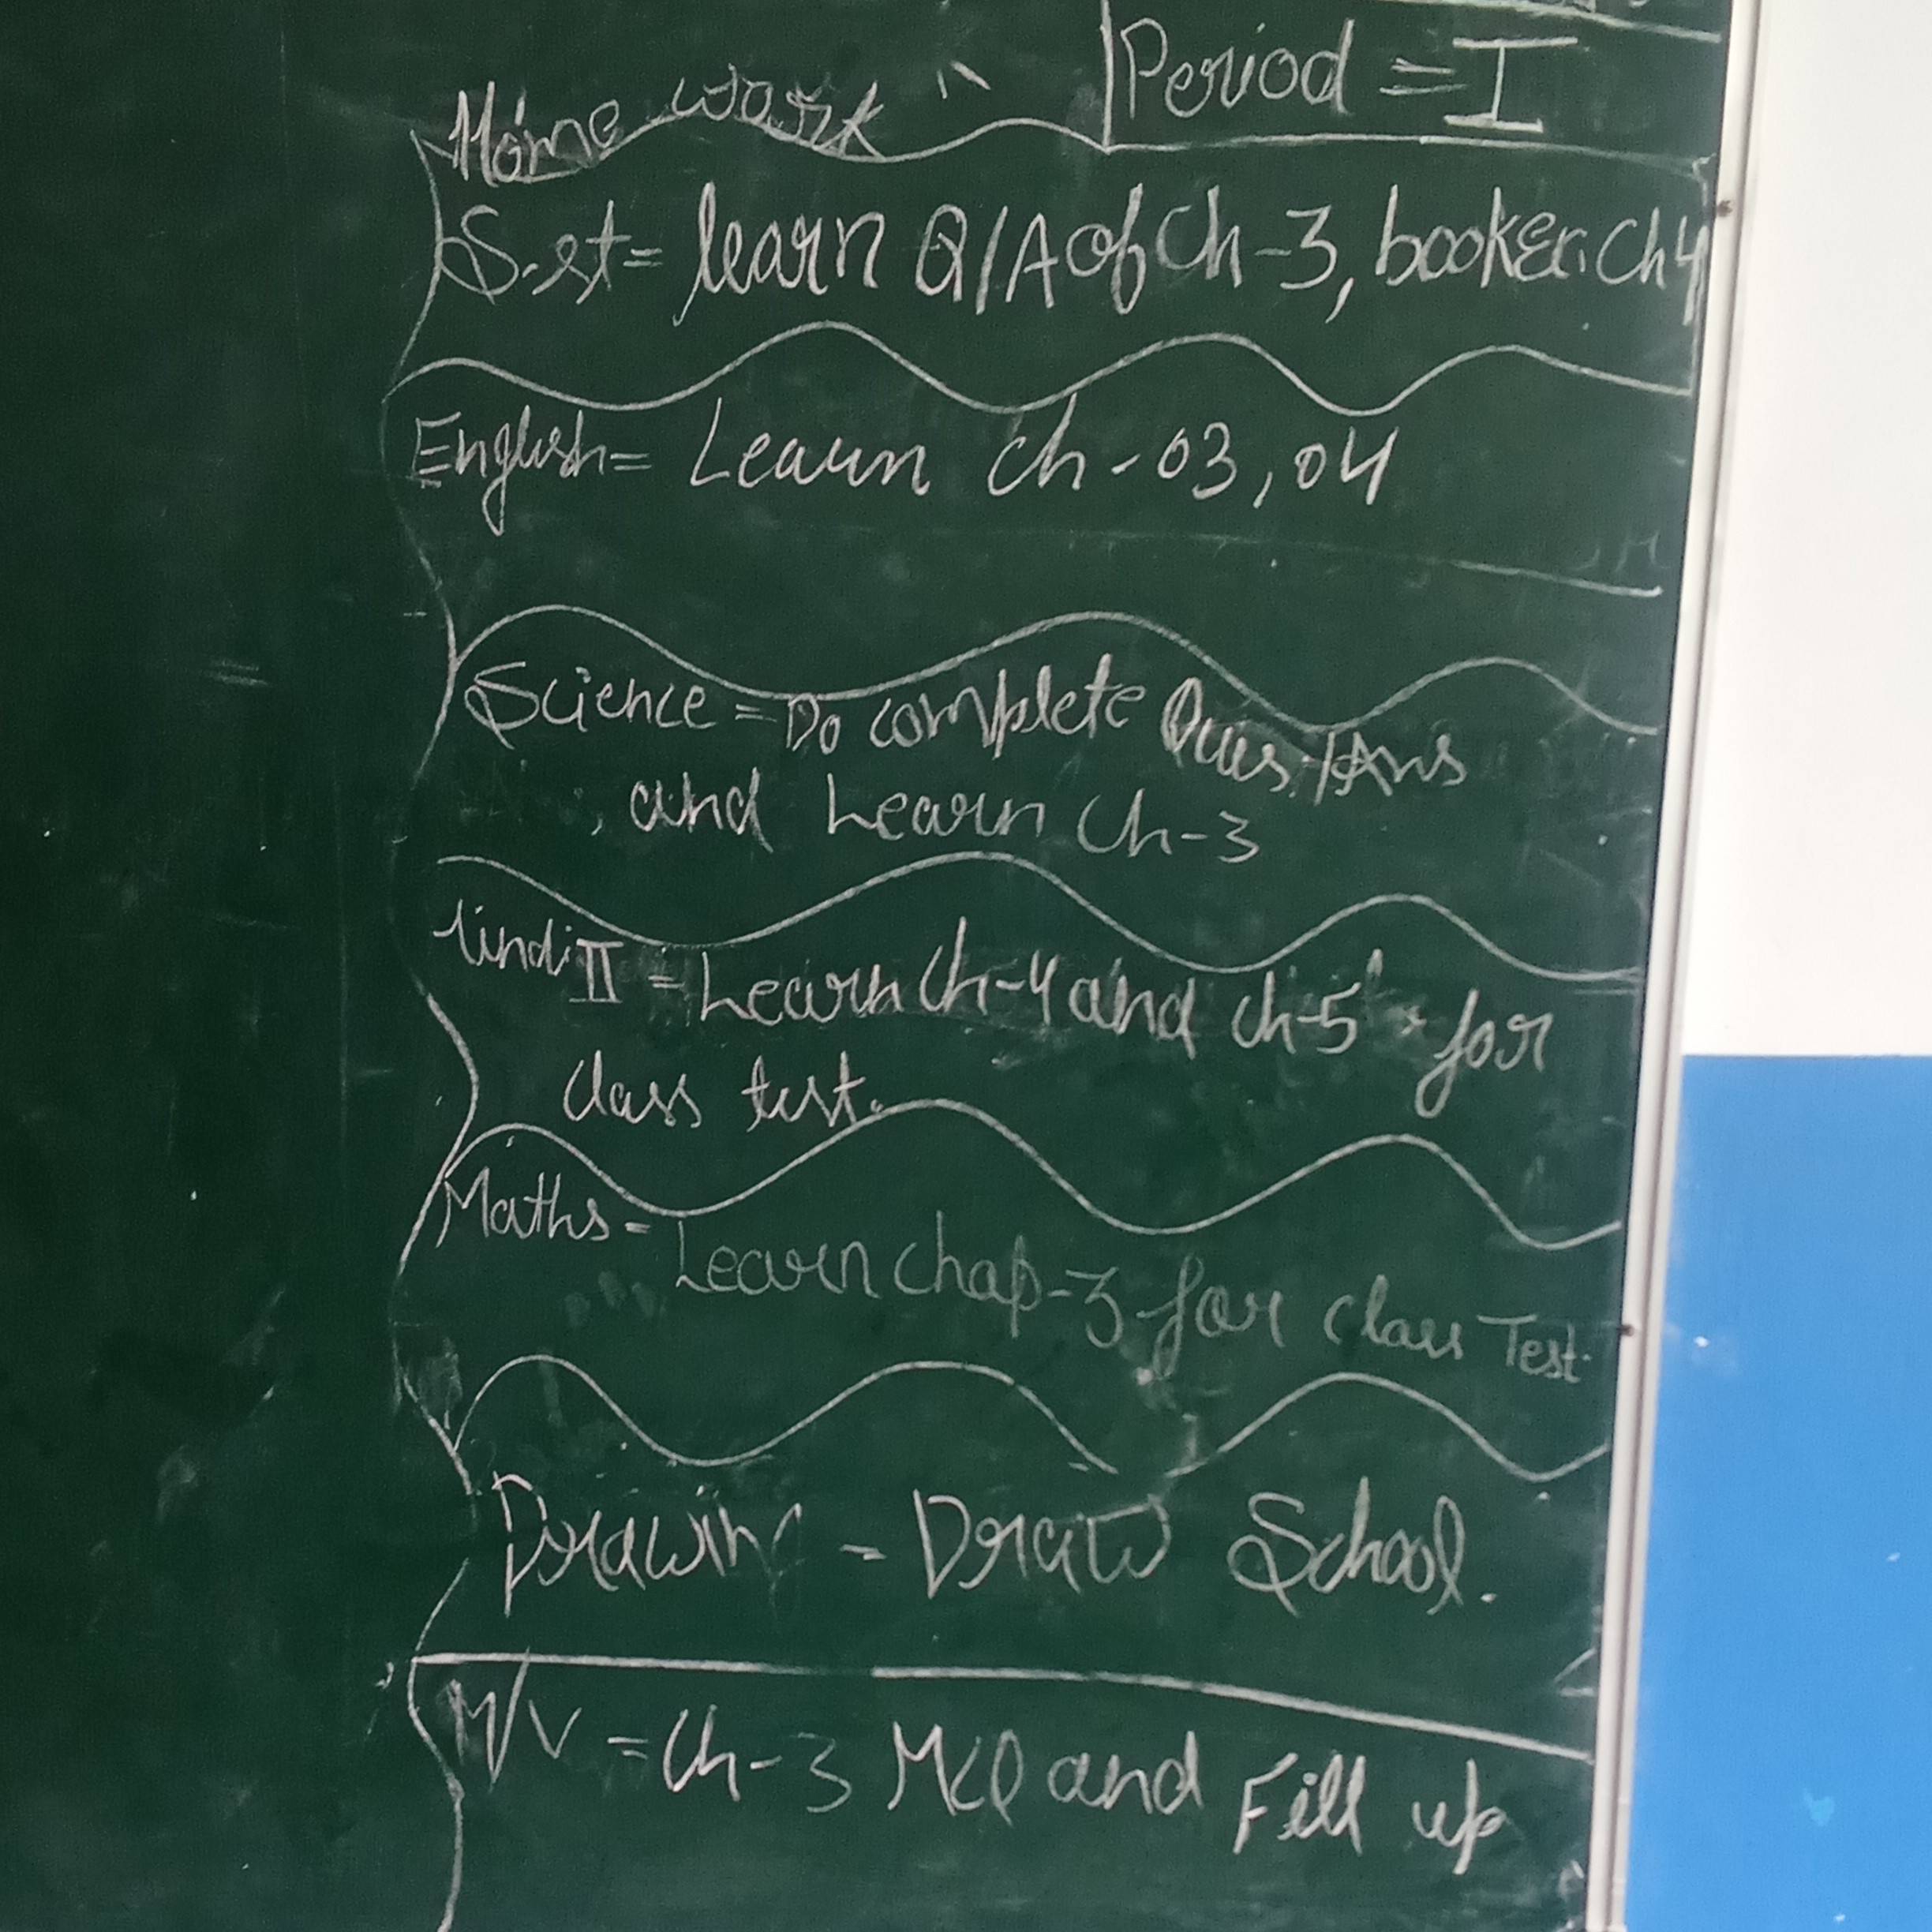 Period = I
Home work
S.st = learn Q/A of Ch-3, booker. Ch 4
English = Learn Ch-03, 04
Science = Do complete Ques./Ans
and Learn Ch-3
Hindi II = Learn Ch-4 and Ch-5 for
class test.
Maths = Learn chap-3 for class Test.
Drawing - Draw School.
M/V = Ch-3 MCQ and Fill up